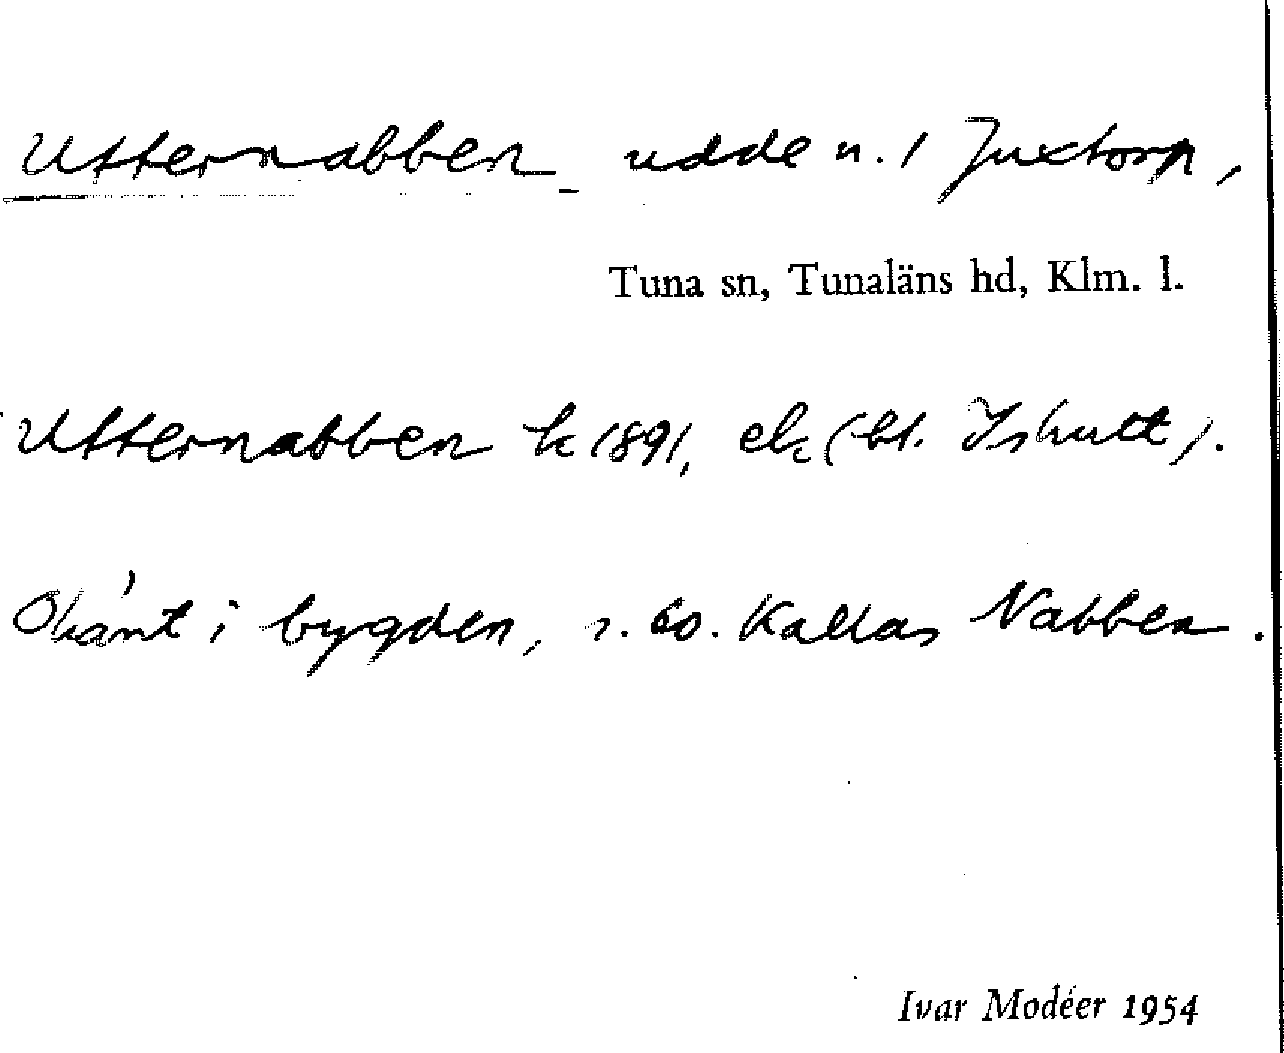 Utternabben udde n. / Juxtorp,
Tuna sn, Tunaläns hd, Klm. l.
Utternabben k 1891, ek (bl. Ishult).
Okänt i bygden, s. Kallas Nabben.
Ivar Modéer 1954